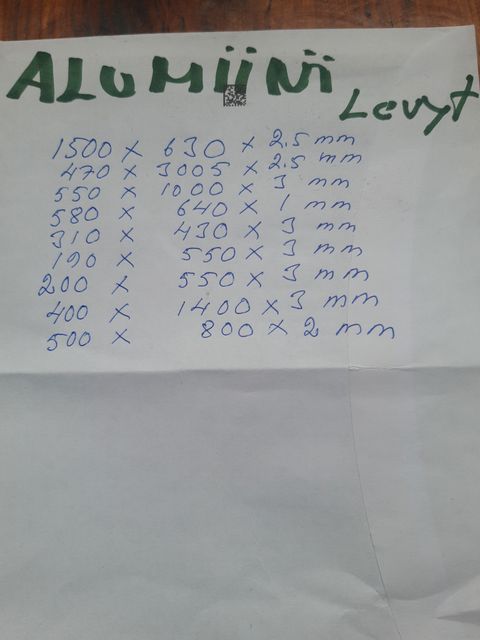 ALUMIINI
Levyt
1500 x 630 x 2.5 mm
470 x 3005 x 2.5 mm
550 x 1000 x 3 mm
580 x 640 x 1 mm
310 x 430 x 3 mm
190 x 550 x 3 mm
200 x 550 x 3 mm
400 x 1400 x 3 mm
500 x 800 x 2 mm